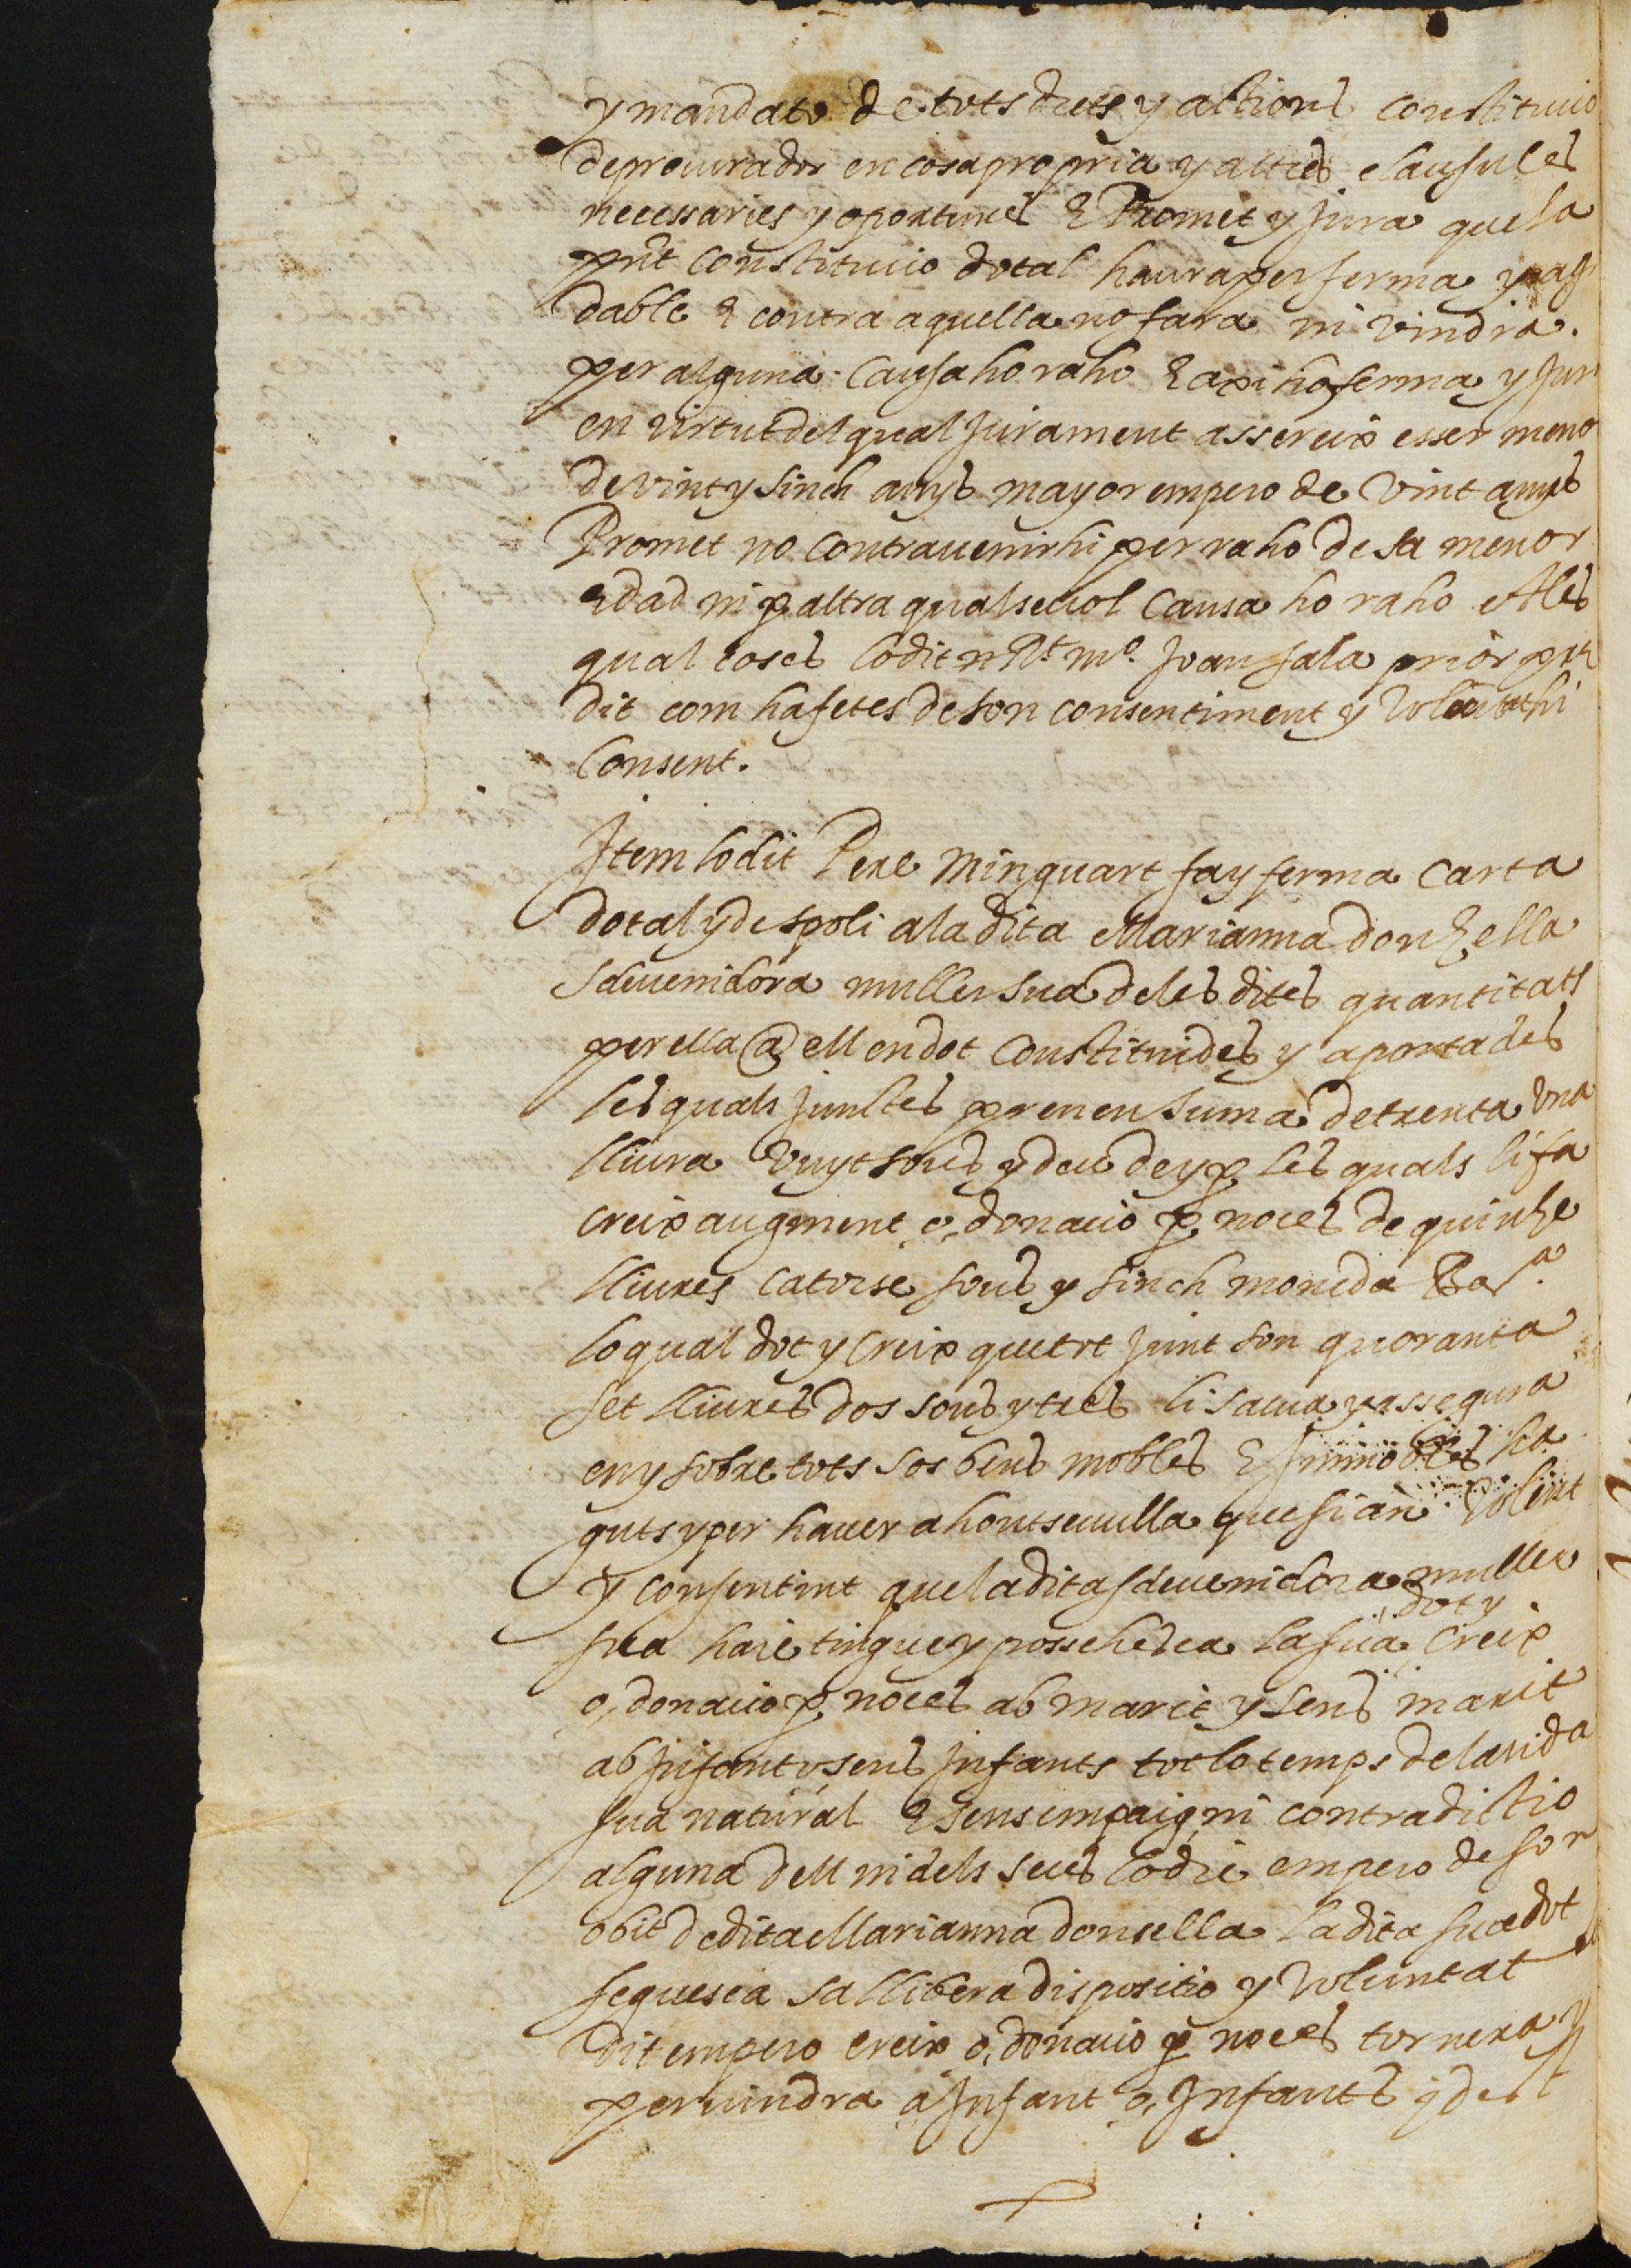 y mandato de tots drets y actions constitucio
de procurador en cosa propria y altres clausules
necessaries y oportunes E Promet y jura que la
pnt constitucio dotal haura per ferma y agra
dable E contra aquella no fara ni vindra.
per alguna causa ho raho E axi ho ferma y jura
en virtut del qual jurament assereix esser menor
de vint y sinch anys mayor empero de vint anys
Promet no contrauenirhi per raho de sa menor
edad ni p altra qualseuol causa ho raho A les
qual coses lo dit n Rt mo. Joan sala prior
dit com ha fetes de son consentiment y voluntat hi
consent.
Item lo dit Pere Minguart fa y ferma carta
dotal y de spoli a la dita Marianna donzella
sdeuenidora muller sua de les dites quantitats
per ella a ell en dot constituides y aportades
les quals juntes prenen suma de trenta vna
lliura vuyt sous y deu de y p les quals li fa
creix augment o, donacio p noces de quinze
lliures catorse sous y sinch moneda Bara.
lo qual dot y creix que tot junt son quoranta
set lliures dos sous y tres li salua y assegura
en y sobre tots sos bens mobles E Immobles ha
guts y per hauer a hont seuulla que sian volent
y consentint que la dita sdeuenidora muller
sua haie tingue y possehesca la sua dot y creix
o, donacio p noces ab marit y sens marit
ab infants y sens infants tot lo temps de la vida
sua natural E sens empaig ni contradictio
alguna dell ni dels seus lo die empero de son
obit de dita Marianna donsella la dita sua dot
sequesca sa llibera dispositio y voluntat
dit empero creix o, donacio p noces tornera y
peruindra a Infant o, Infants y de st